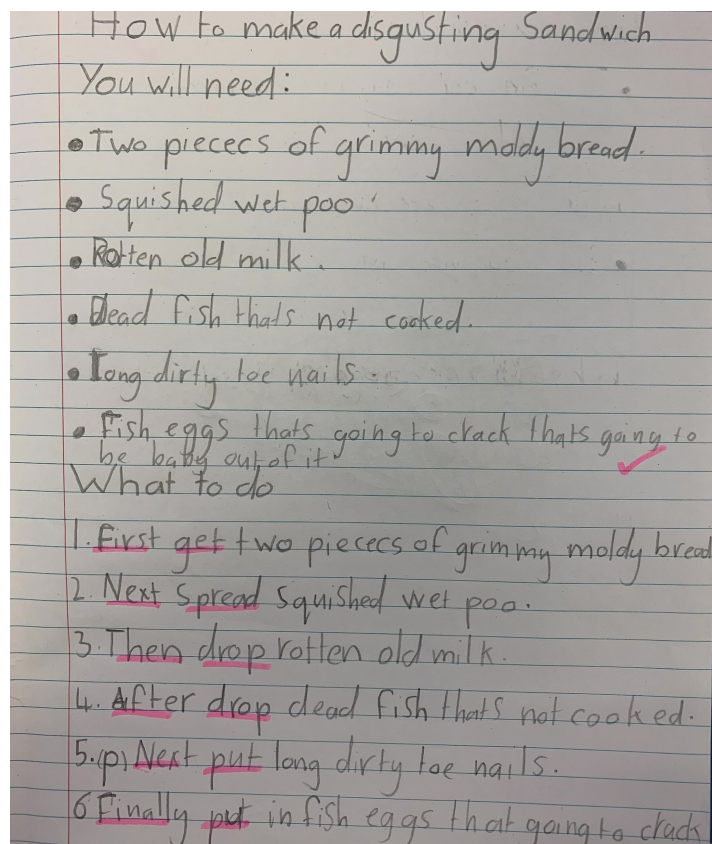 How to make a disgusting Sandwich
You will need:
• Two piececs of grimmy moldy bread.
• Squished wet poo
• Rotten old milk.
• Dead fish thats not cooked.
• Long dirty toe nails.
• Fish eggs thats going to crack thats going to
be baby out of it
What to do
1. First get two piececs of grimmy moldy bread
2. Next spread squished wet poo.
3. Then drop rotten old milk.
4. After drop dead fish thats not cooked.
5. (p) Next put long dirty toe nails.
6 Finally put in fish eggs that going to crack